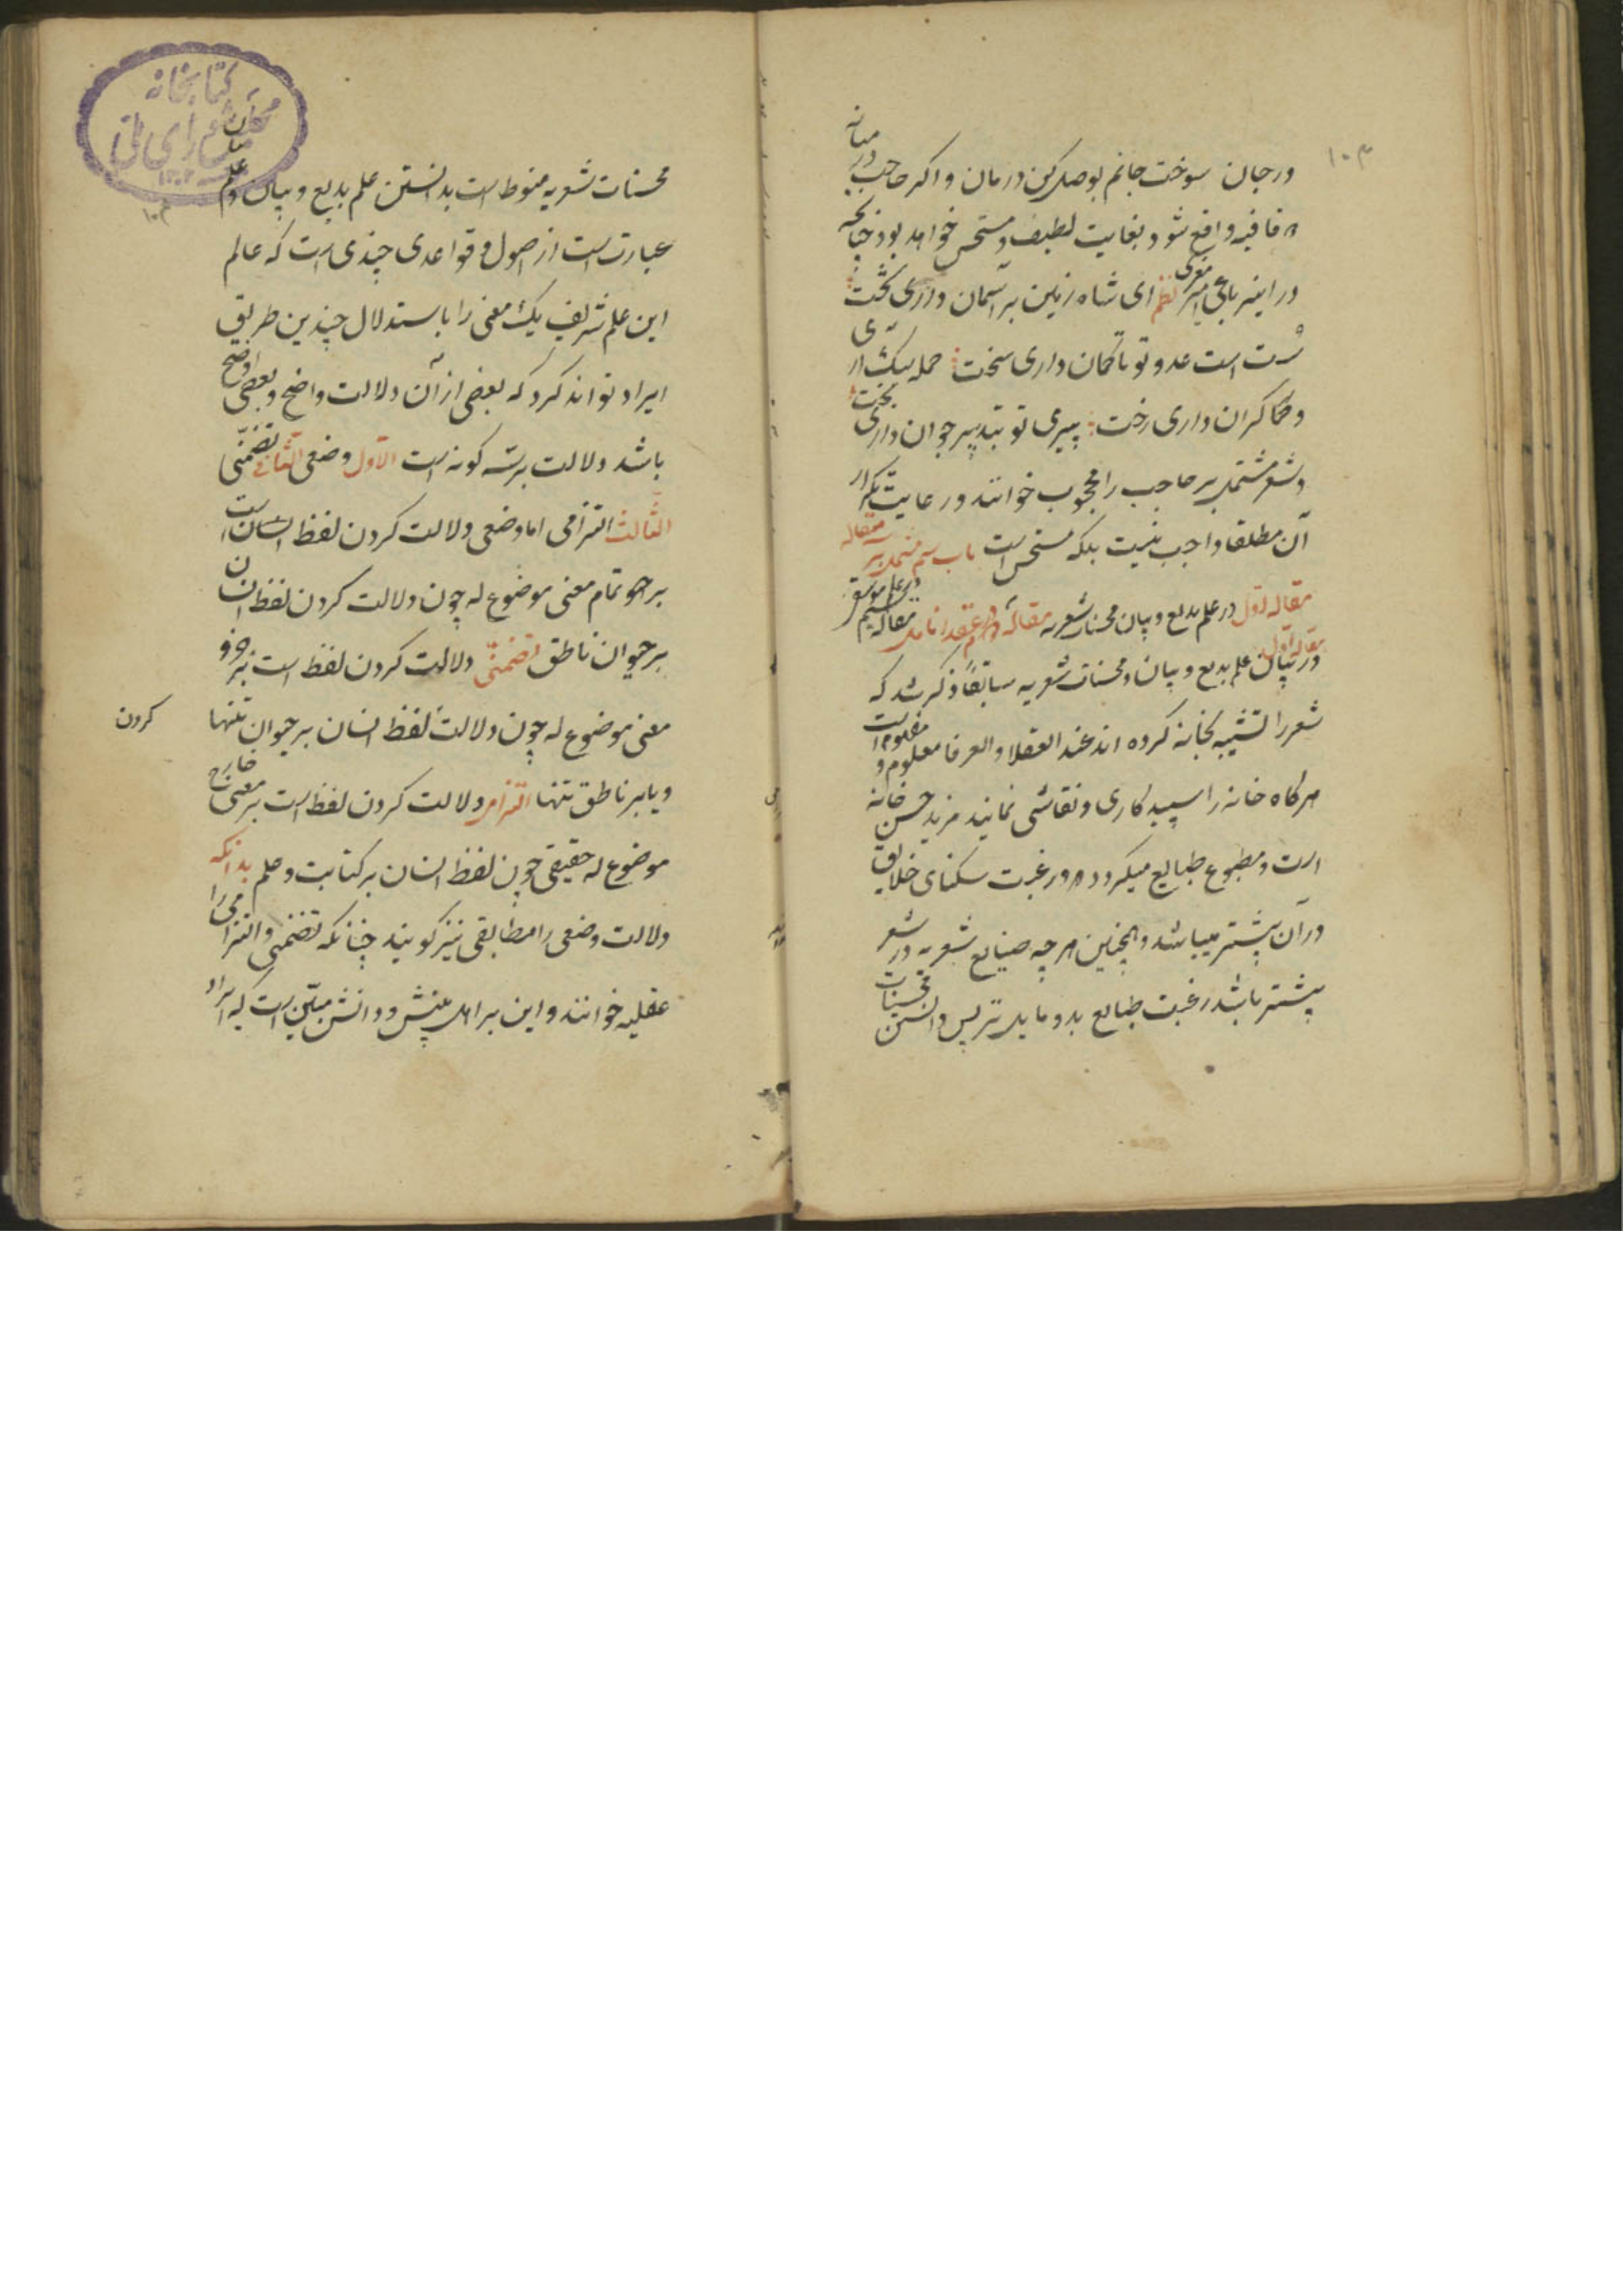 ۱۰۳
در جان سوخت جانم بوصل کن درمان و اکر حاجب در میانه
دو قافیه واقع شود بغایت لطیف و مستحسن خواهد بود چنانچه
در این رباعی امیر معزی نظم ای شاه زمین بر آسمان داری تخت
سست است عدو تو تا کمان داری سخت حمله سبک آری
و کران داری رخت پیری تو بتدبیر جوان داری بخت
و شعر مشتمل بر حاجب را محجوب خوانند و رعایت تکرار
آن مطلقا واجب نیست بلکه مستحسن است باب سیم مشتمل بر سه مقاله
مقاله اول در علم بدیع و بیان محسنات شعریه مقاله دوم در عقد انامل مقاله سیم در علم موسیقی
مقاله اول در بیان علم بدیع و بیان و محسنات شعریه سابقا ذکر شد که
شعر را تشبیه بخانه کرده اند عند العقلا و العرفا معلوم و مفهوم است
هر کاه خانه را سپید کاری و نقاشی نمایند مزید حسن خانه
است و مطبوع طبایع میکردد و رغبت سکنای خلایق
در آن بیشتر میباشد و همچنین هر چه صنایع شعریه در شعر
بیشتر باشد رغبت طبایع بدو مایل تر پس دانستن محسنات
کتابخانه
مجلس شورای ملی
محسنات شعریه منوط است بدانستن علم بدیع و بیان و علم بیان
عبارت است از اصول و قواعدی چندی است که عالم
این علم شریف یک معنی را باستدلال چندین طریق
ایراد تواند کرد که بعضی از آن دلالت واضح و بعضی اوضح
باشد و دلالت بر سه کونه است الاول وضعی الثانی تضمنی
الثالث التزامی اما وضعی دلالت کردن لفظ است
بر تمام معنی موضوع له چون دلالت کردن لفظ انسان
بر حیوان ناطق تضمنی دلالت کردن لفظ است بر جزو
معنی موضوع له چون دلالت لفظ انسان بر حیوان تنها
کردن
و یا بر ناطق تنها التزامی دلالت کردن لفظ است بر معنی خارج
موضوع له حقیقی چون لفظ انسان بر کتابت و علم بدانکه
دلالت وضعی را مطابقی نیز کویند چنانکه تضمنی و التزامی را
عقلیه خوانند و این بر اهل بینش و دانش مبین است که ایراد